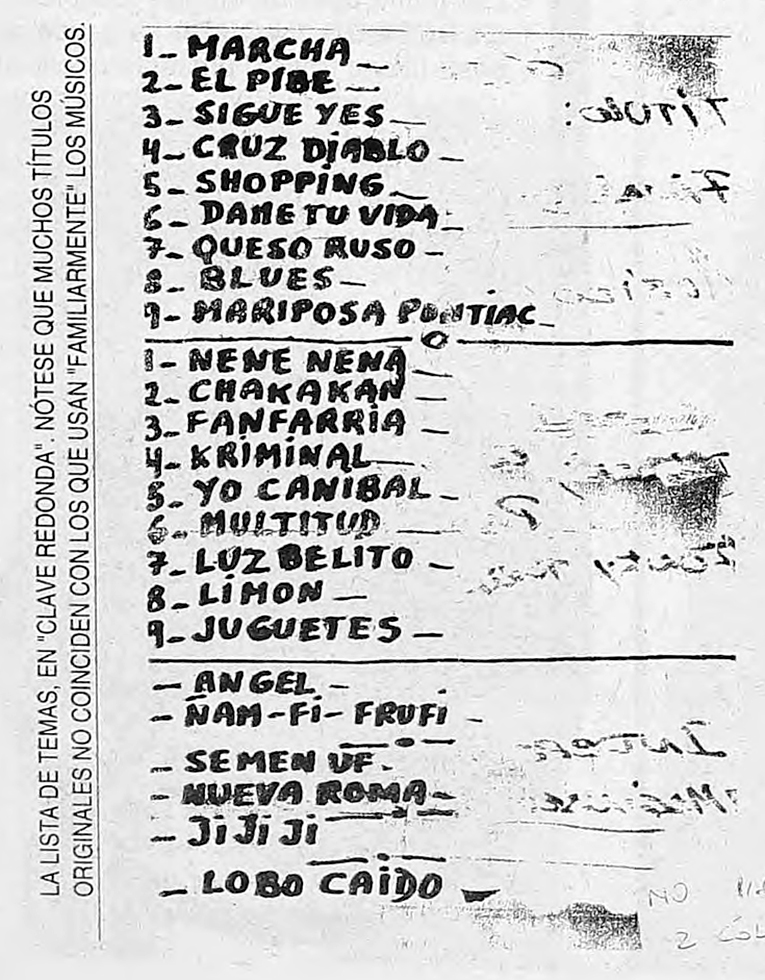 LA LISTA DE TEMAS, EN "CLAVE REDONDA". NÓTESE QUE MUCHOS TÍTULOS
ORIGINALES NO COINCIDEN CON LOS QUE USAN "FAMILIARMENTE" LOS MÚSICOS.
1_ MARCHA _
2_ EL PIBE _
3_ SIGUE YES _
4_ CRUZ DIABLO _
5_ SHOPPING _
6_ DAME TU VIDA _
7_ QUESO RUSO _
8_ BLUES _
9_ MARIPOSA PONTIAC _
1_ NENE NENA _
2_ CHAKAKAN _
3_ FANFARRIA _
4_ KRIMINAL _
5_ YO CANIBAL _
6_ MULTITUD _
7_ LUZ BELITO _
8_ LIMON _
9_ JUGUETES _
_ ANGEL _
_ ÑAM-FI-FRUFI _
_ SEMEN UF _
_ NUEVA ROMA _
_ JiJiJi
_ LOBO CAIDO _
TíTULO:
NO
2